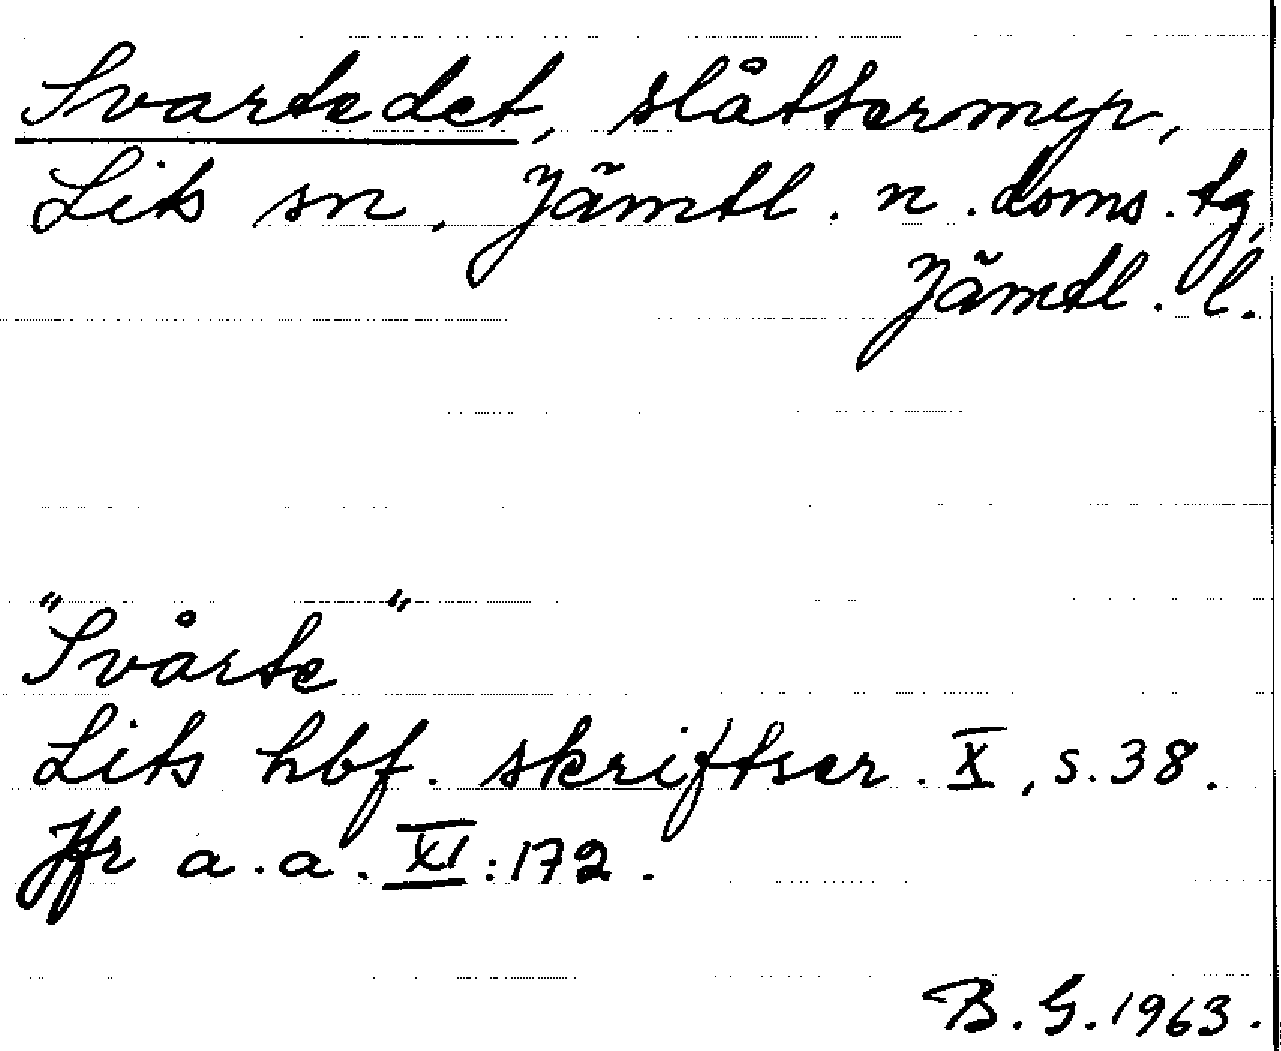 Svartedet, slåttermyr,
Lits sn, Jämtl. n. doms. tg,
Jämtl. l.
"Svårte"
Lits hbf. skriftser. X, s. 38.
Jfr a. a. XI: 172.
B. G. 1963.